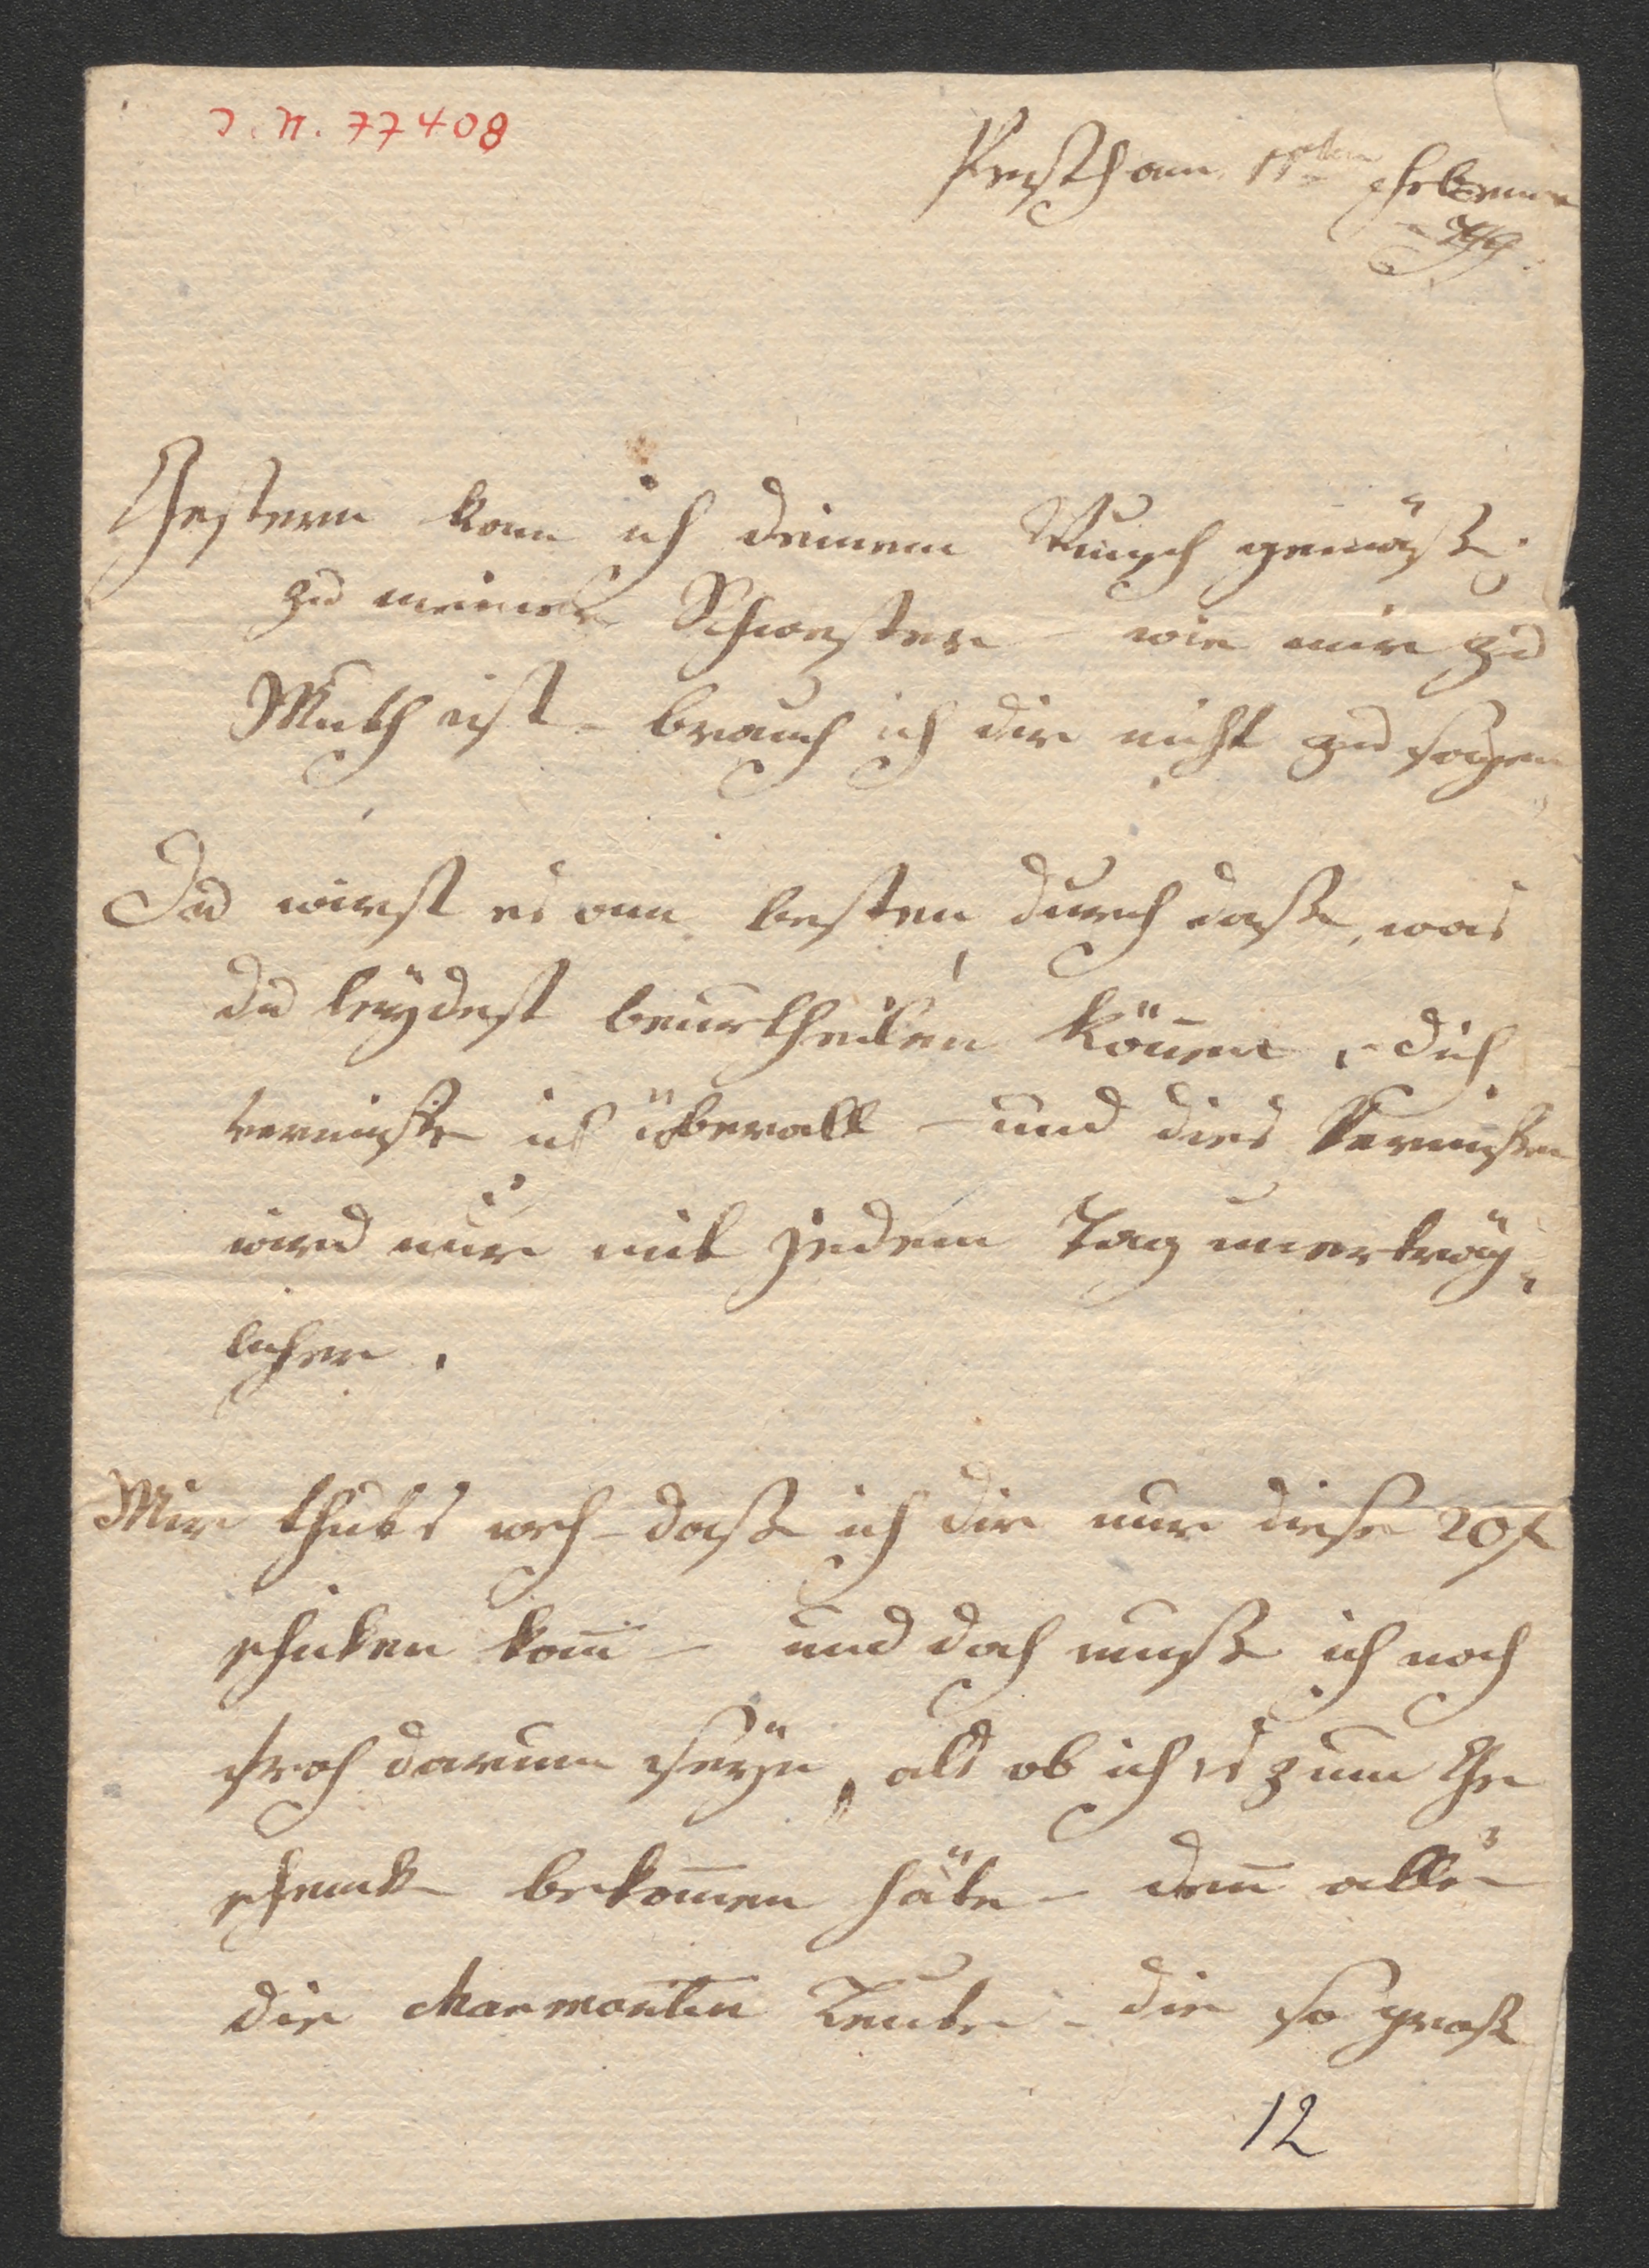 I. N. 77408
Pesth am 11ten Februar
799.
Gestern kam ich deinem Wunsch gemäß
zu meiner Schwester – wie mir zu
Muth ist – brauch ich dir nicht zu sagen
Du wirst es am besten durch daß, was
du leydest beurtheilen können, – dich
vermiße ich überall – und dies Vermißen
wird nur mit jedem Tag unerträg-
licher.
Mir thuts weh – daß ich dir nur diese 20 f
schicken kann – und doch muß ich noch
froh darum seyn, als ob ich es zum Ge
schenk bekommen häte – denn alle
die charmanten Leute – die so groß
12